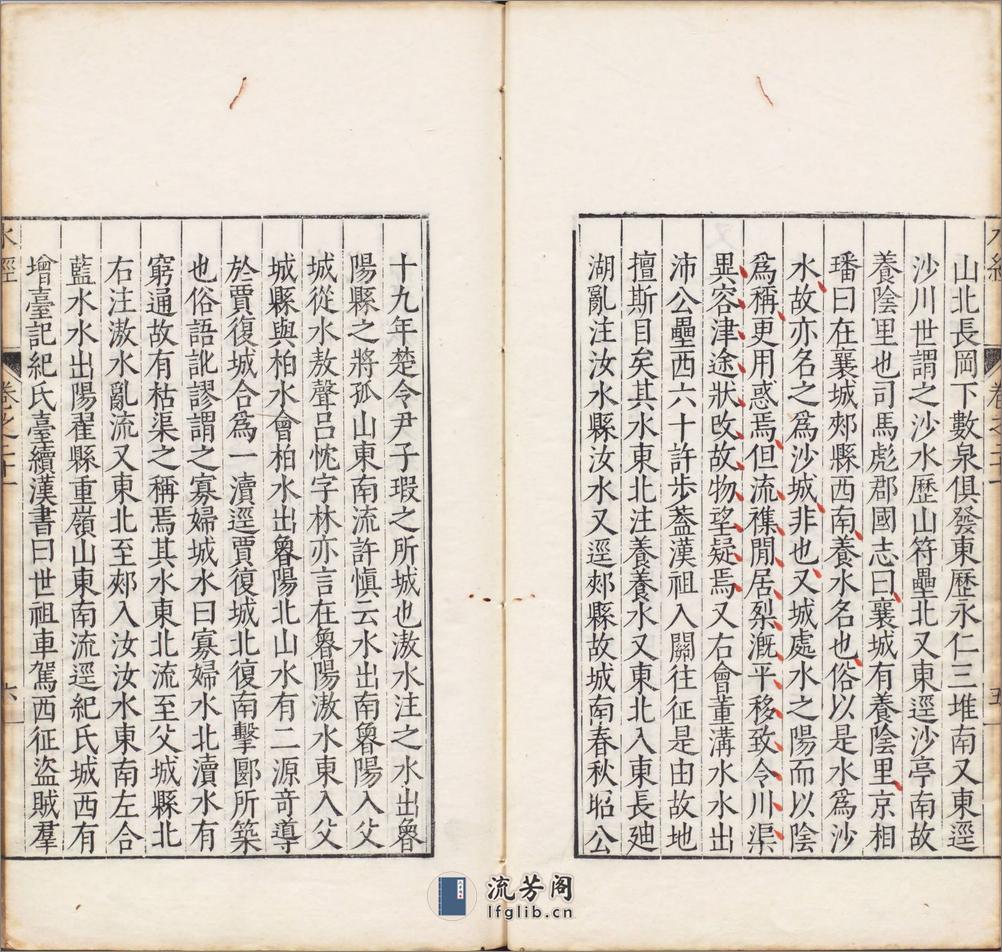 山北長岡下數泉俱發東歷永仁三堆南又東逕
沙川世謂之沙水歷山符壘北又東逕沙亭南故
養陰里也司馬彪郡國志曰襄城有養陰里京相
璠曰在襄城郟縣西南養水名也俗以是水爲沙
水故亦名之爲沙城非也又城處水之陽而以陰
爲稱更用惑焉但流襍閒居裂漑平移致令川渠
異容津途狀改故物望疑焉又右會董溝水水出
沛公壘西六十許步蓋漢祖入關往征是由故地
擅斯目矣其水東北注養養水又東北入東長廸
湖亂注汝水縣汝水又逕郟縣故城南春秋昭公
十九年楚令尹子瑕之所城也滶水注之水出魯
陽縣之將孤山東南流許愼云水出南魯陽入父
城從水敖聲呂忱字林亦言在魯陽滶水東入父
城縣與柏水會柏水出魯陽北山水有二源竒導
於賈復城合爲一瀆逕賈復城北復南擊郾所築
也俗語訛謬謂之寡婦城水曰寡婦水北瀆水有
窮通故有枯渠之稱焉其水東北流至父城縣北
右注滶水亂流又東北至郟入汝汝水東南左合
藍水水出陽翟縣重嶺山東南流逕紀氏城西有
增臺記紀氏臺續漢書曰世祖車駕西征盜賊羣
水經
卷之二十一
六
流芳阁
lfglib.cn